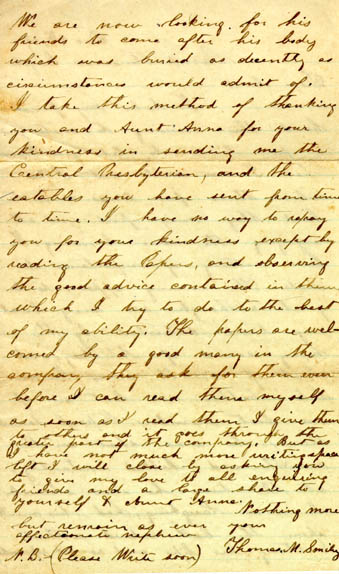 We are now looking for his
friends to come after his body
which was buried as decently as
circumstances would admit of.
I take this method of thanking
you and Aunt Anna for your
kindness in sending me the
Central Presbyterian, and the
eatables you have sent from time
to time. I have no way to repay
you for your kindness except by
reading the Papers, and observing
the good advice contained in them
which I try to do to the best
of my ability. The papers are wel-
comed by a good many in the
company they ask for them even
before I can read them myself
as soon as I read them I give them
to others and it goes through the
greater part of the company. But as
I have not much more writing space
left I will close by asking you
to give my love to all enquiring
friends and a large share to
yourself & Aunt Anna.
Nothing more
but remain as ever your
affectionate nephew
Thomas. M. Smiley
N.B. (Please Write soon)